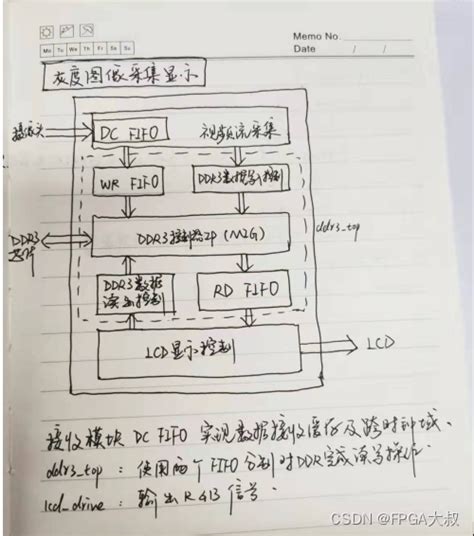 Memo No.
Mo Tu We Th Fr Sa Su
Date / /
灰度图像采集显示
摄像头
DC FIFO
视频流采集
WR FIFO
DDR3数据写控制
DDR3
芯片
DDR3控制器IP (MIG)
ddr3_top
DDR3数据
读出控制
RD FIFO
LCD显示控制
LCD
接收模块 DC FIFO 实现数据接收缓存及跨时钟域.
ddr3_top : 使用两个FIFO分别对DDR完成读写操作.
lcd_drive : 输出RGB信号.
CSDN @FPGA大叔